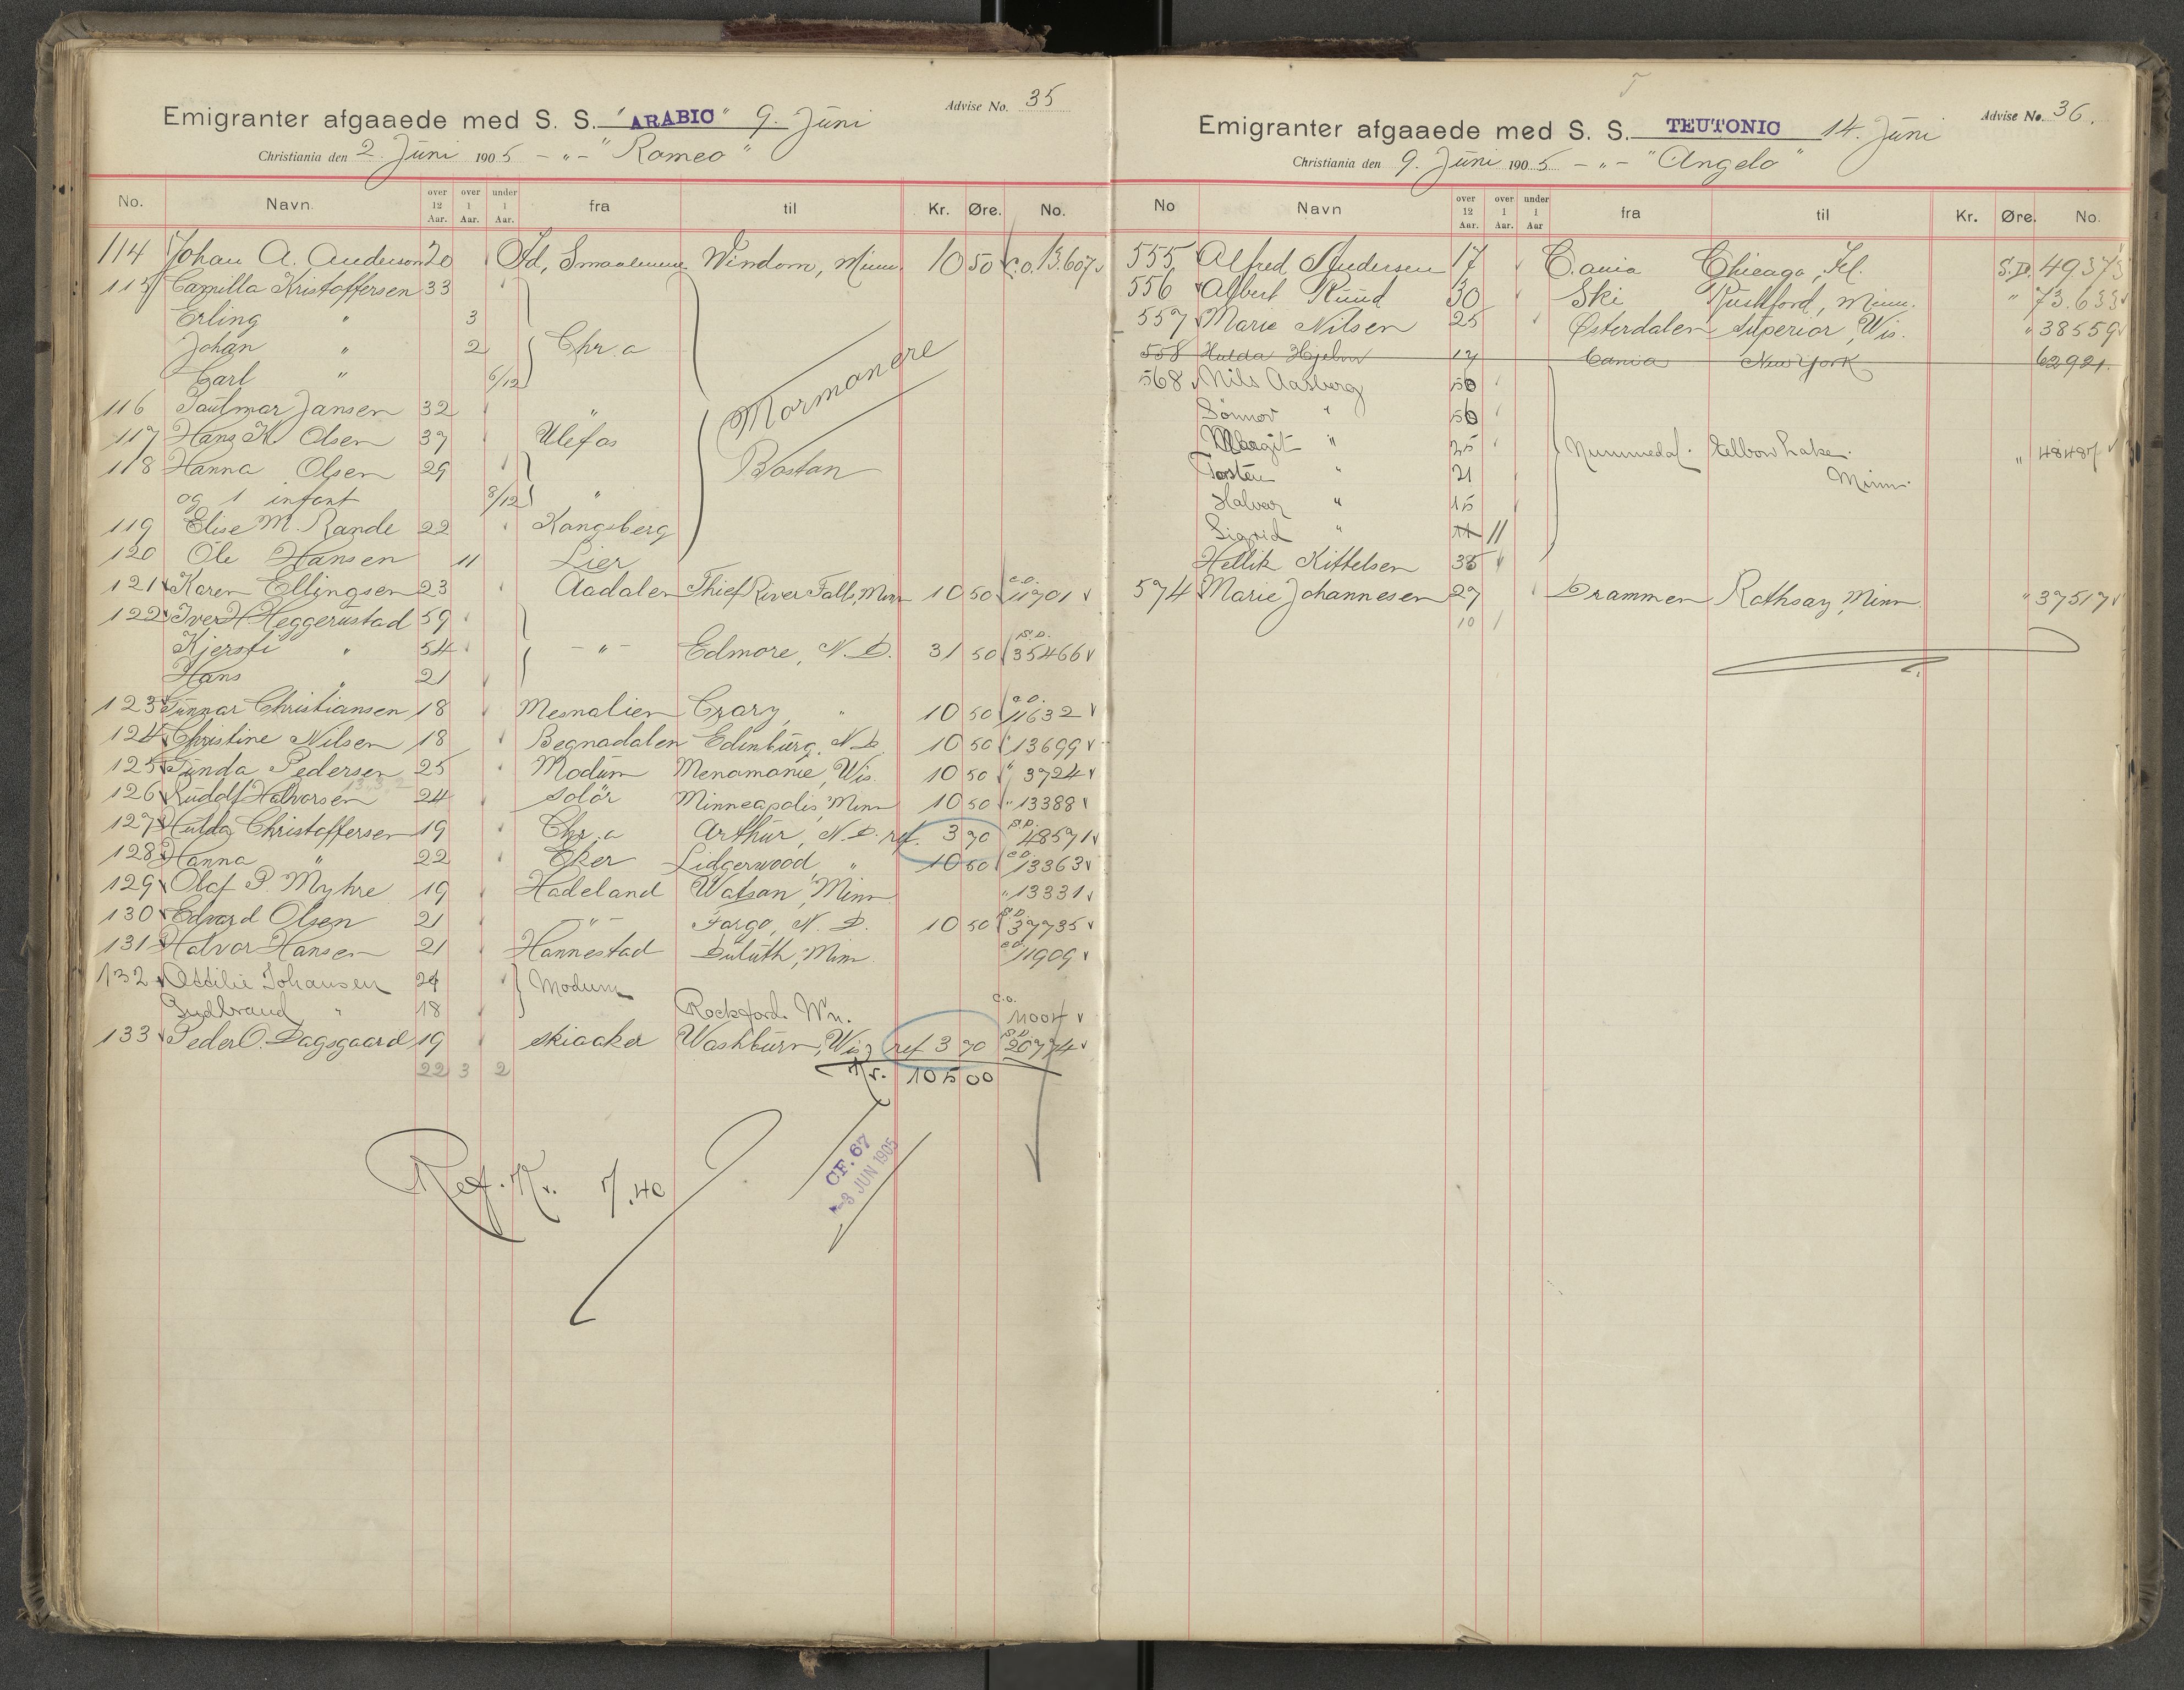 Advise No. 35
Emigranter afgaaede med S. S. "ARABIC" 9. Juni
Christiania den 2. Juni 1905 - " - "Romeo"
No. Navn. over 12 Aar. over 1 Aar. under 1 Aar. fra til Kr. Øre. No.
114 Johan A. Anderson 20 Id, Smaalenene Windom, Minn. 10 50 C.O. 13.607
115 Camilla Kristoffersen 33
Erling " 3
Johan " 2 Chr.a
Carl " 6/12
Mormanere
116 Jansen 32 "
117 Hans K. Olsen 37 Ulefos
118 Hanna Olsen 29 Boston
og 1 infant 8/12 "
119 Elise M. Rande 22 Kongsberg
120 Ole Hansen 11 Lier
121 Karen Ellingsen 23 Aadalen Thief River Falls, Minn 10 50 C.O. 11701
122 Iver H. Heggerustad 59
Kjersti " 54 - " - Edmore, N. D. 31 50 S.D. 35466
Hans " 21
123 Gunnar Christiansen 18 Mesnalien Crary, " 10 50 C.O. 11632
124 Christine Nilsen 18 Begnadalen Edinburg, N.D. 10 50 " 13699
125 Gunda Pedersen 25 Modum Menomonie, Wis. 10 50 " 3724
126 Rudolf Halvorsen 24 Solör Minneapolis, Minn 10 50 " 13388
127 Hulda Christoffersen 19 Chr.a Arthur, N. D. ref. 3 70 S.D. 48571
128 Hanna " 22 Eker Lidgerwood " 10 50 C.O. 13363
129 Olaf P. Myhre 19 Hadeland Watson, Minn " 13331
130 Edvard Olsen 21 - " - Fargo, N. D. 10 50 S.D. 37735
131 Halvor Hansen 21 Hannestad Duluth, Minn. C.O. 11909
132 Ottilie Johansen 24 Modum
Gudbrand " 18 Rockford. C.O. 11004
133 Peder O. Dagsgaard 19 Skiaaker Washburn, Wis ref 3 70 S.D. 20774
22 3 2 Kr. 105 00
Ref. Kr. 7.40
CF. 67
-3 JUN 1905
Advise No. 36.
Emigranter afgaaede med S. S. TEUTONIC 14. Juni
Christiania den 9. Juni 1905 - " - "Angelo"
No Navn over 12 Aar. over 1 Aar. under 1 Aar fra til Kr. Øre. No.
555 Alfred Andersen 17 C.ania Chicago, Ill. S.D. 49373
556 Albert Ruud 30 Ski Rushford, Minn. " 73.633
557 Marie Nilsen 25 Østerdalen Superior, Wis. " 38559
558 Hulda Hjelm 17 Cania New York 62921.
568 Nils Aasberg 50
Sönnov " 56
Margit " 25 Nummedal. Elbow Lake. Minn. " 48487
Torsten " 21
Halvor " 15
Sigrid " 11 11
Hellik Kittelsen 35
574 Marie Johannesen 27 Drammen Rothsay, Minn. " 37517
10 1